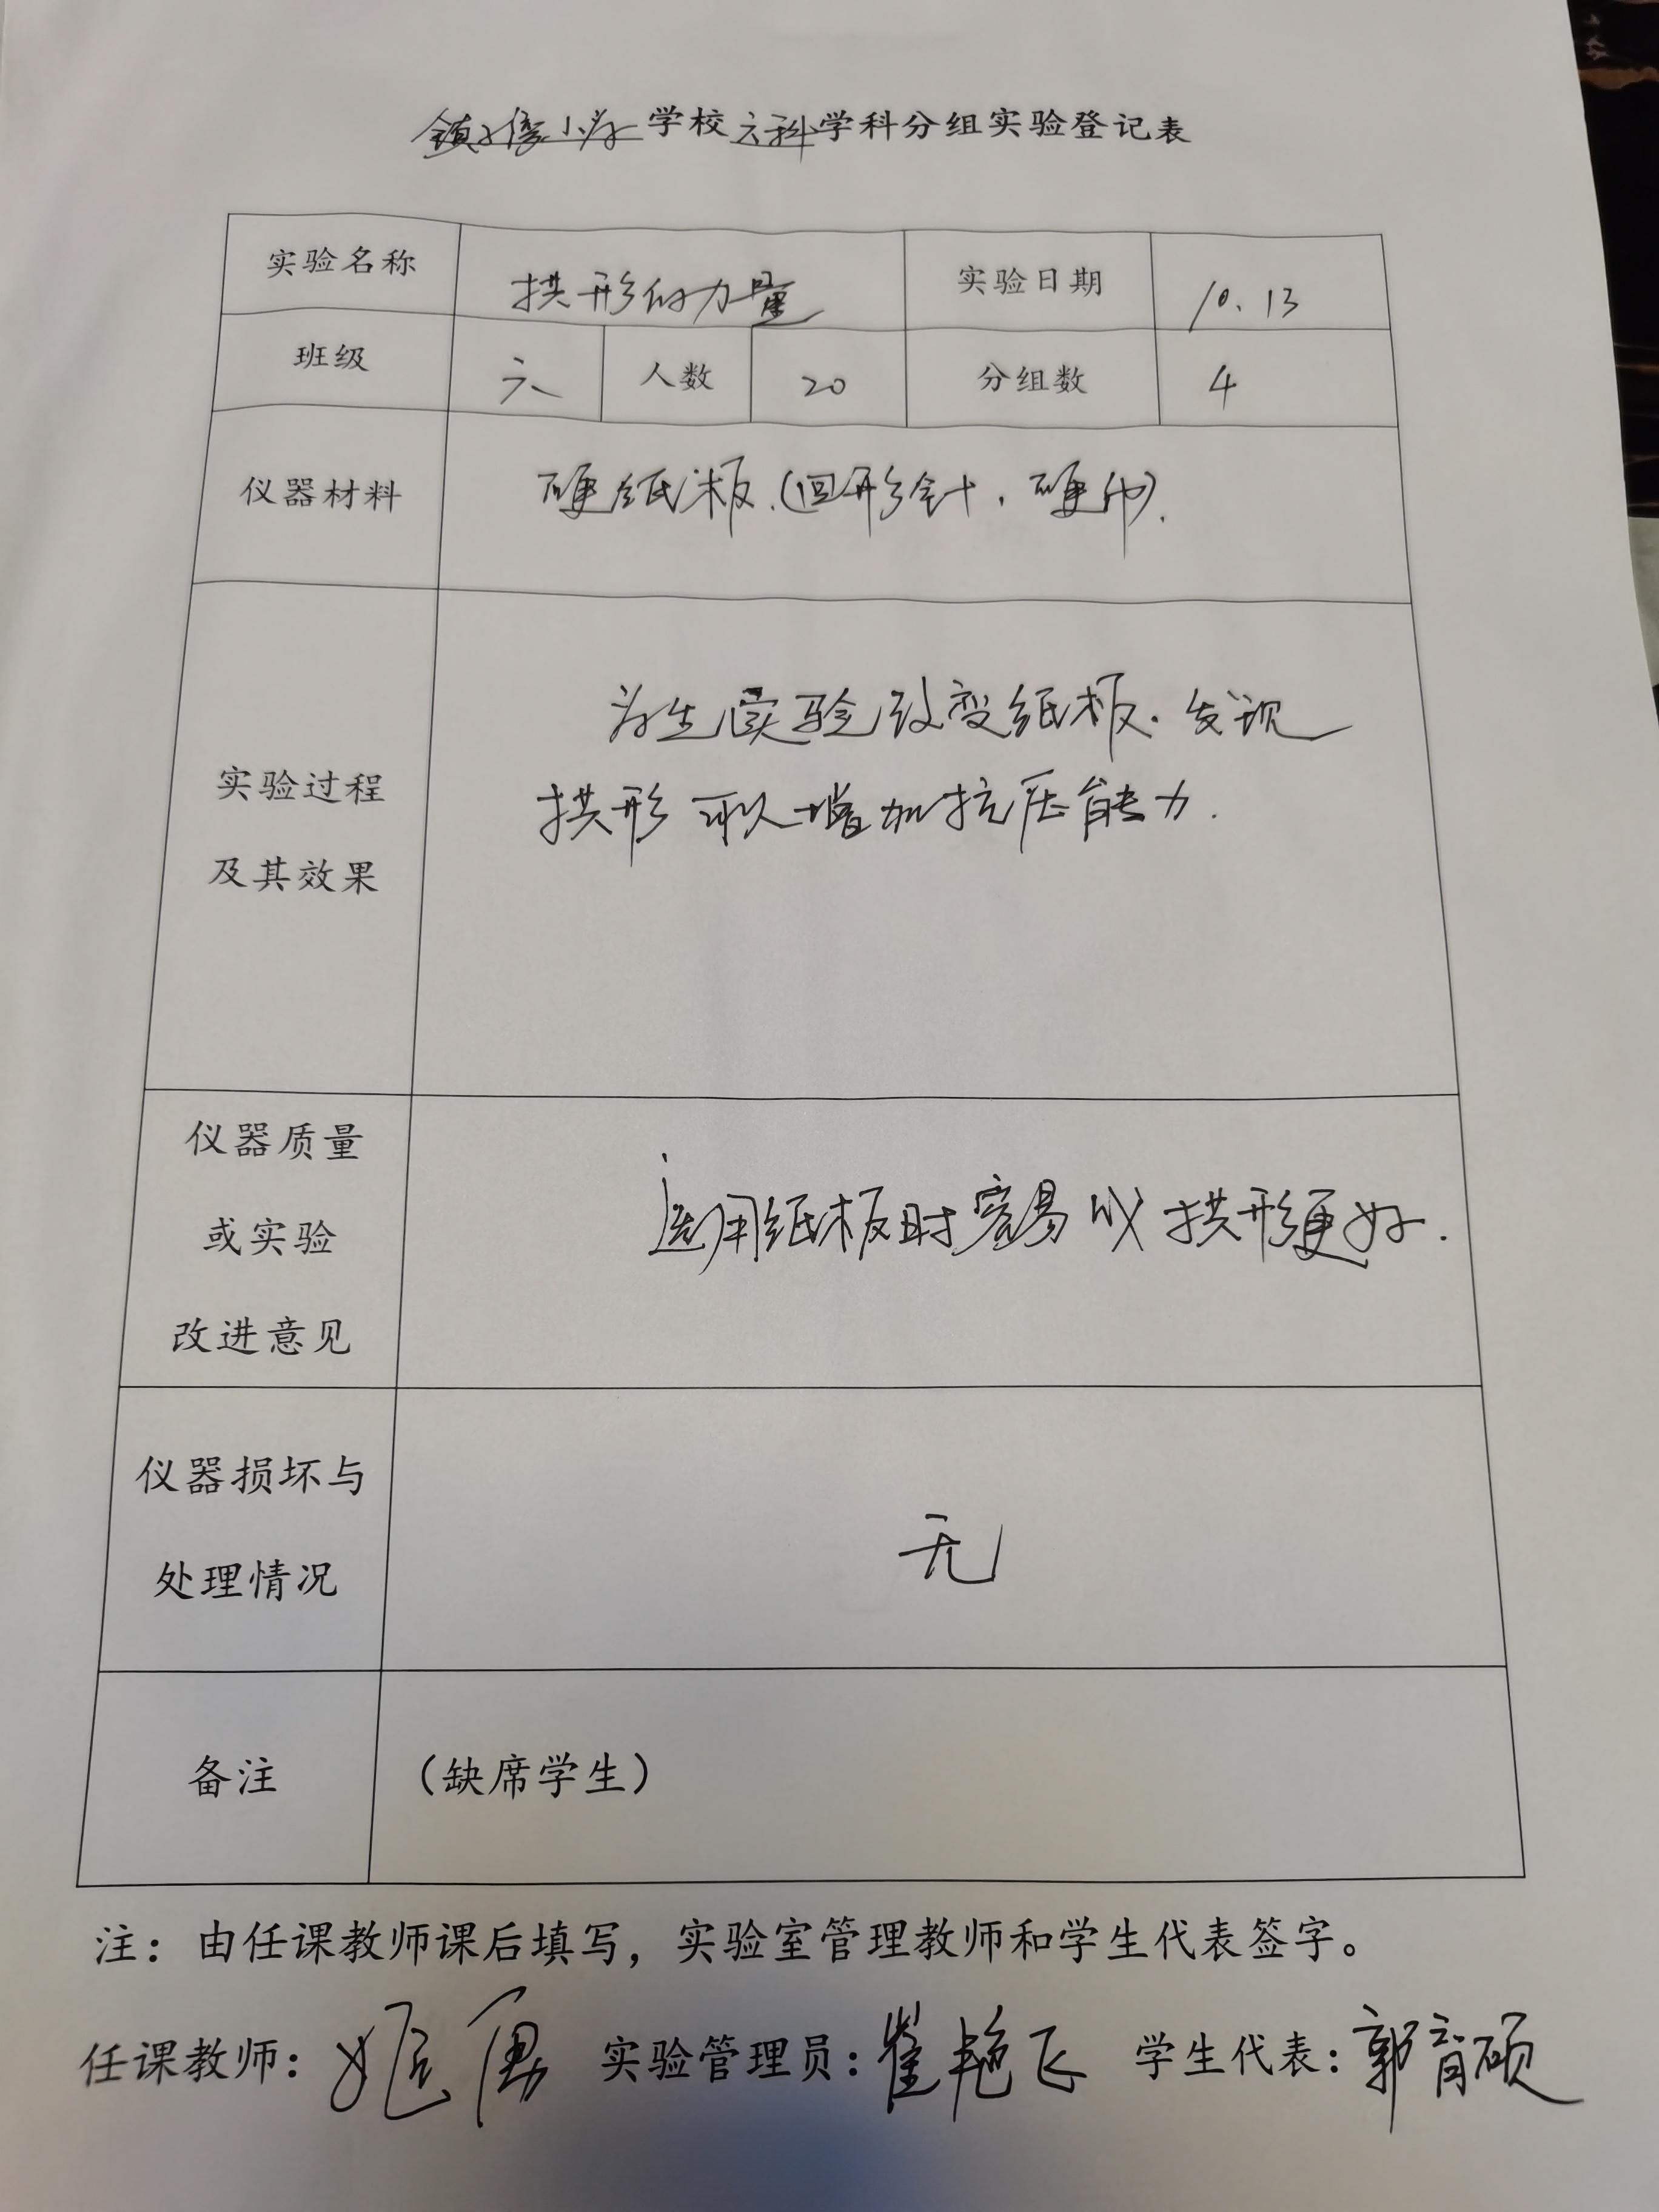 小学学校六科学科分组实验登记表
实验名称 拱形的力量 实验日期 10.13
班级 六 人数 20 分组数 4
仪器材料 硬纸板.(回形针,硬币).
学生实验改变纸板.发现
实验过程 拱形可以增加抗压能力.
及其效果
仪器质量
或实验 选用纸板时容易以拱形更好.
改进意见
仪器损坏与 无
处理情况
备注 (缺席学生)
注:由任课教师课后填写,实验室管理教师和学生代表签字。
任课教师: 实验管理员:崔艳飞 学生代表:郭育硕